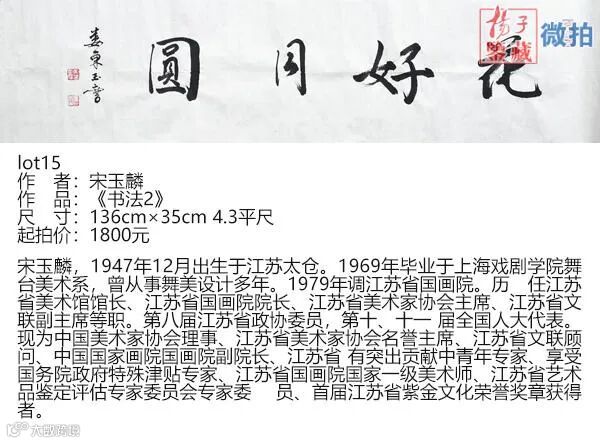 花好月圆
娄东玉麟
扬子
鉴藏
微拍
lot15
作 者：宋玉麟
作 品：《书法2》
尺 寸：136cm×35cm 4.3平尺
起拍价：1800元
宋玉麟，1947年12月出生于江苏太仓。1969年毕业于上海戏剧学院舞
台美术系，曾从事舞美设计多年。1979年调江苏省国画院。历 任江苏
省美术馆馆长、江苏省国画院院长、江苏省美术家协会主席、江苏省文
联副主席等职。第八届江苏省政协委员，第十、十一 届全国人大代表。
现为中国美术家协会理事、江苏省美术家协会名誉主席、江苏省文联顾
问、中国国家画院国画院副院长、江苏省 有突出贡献中青年专家、享受
国务院政府特殊津贴专家、江苏省国画院国家一级美术师、江苏省艺术
品鉴定评估专家委员会专家委 员、首届江苏省紫金文化荣誉奖章获得
者。
大数跨境